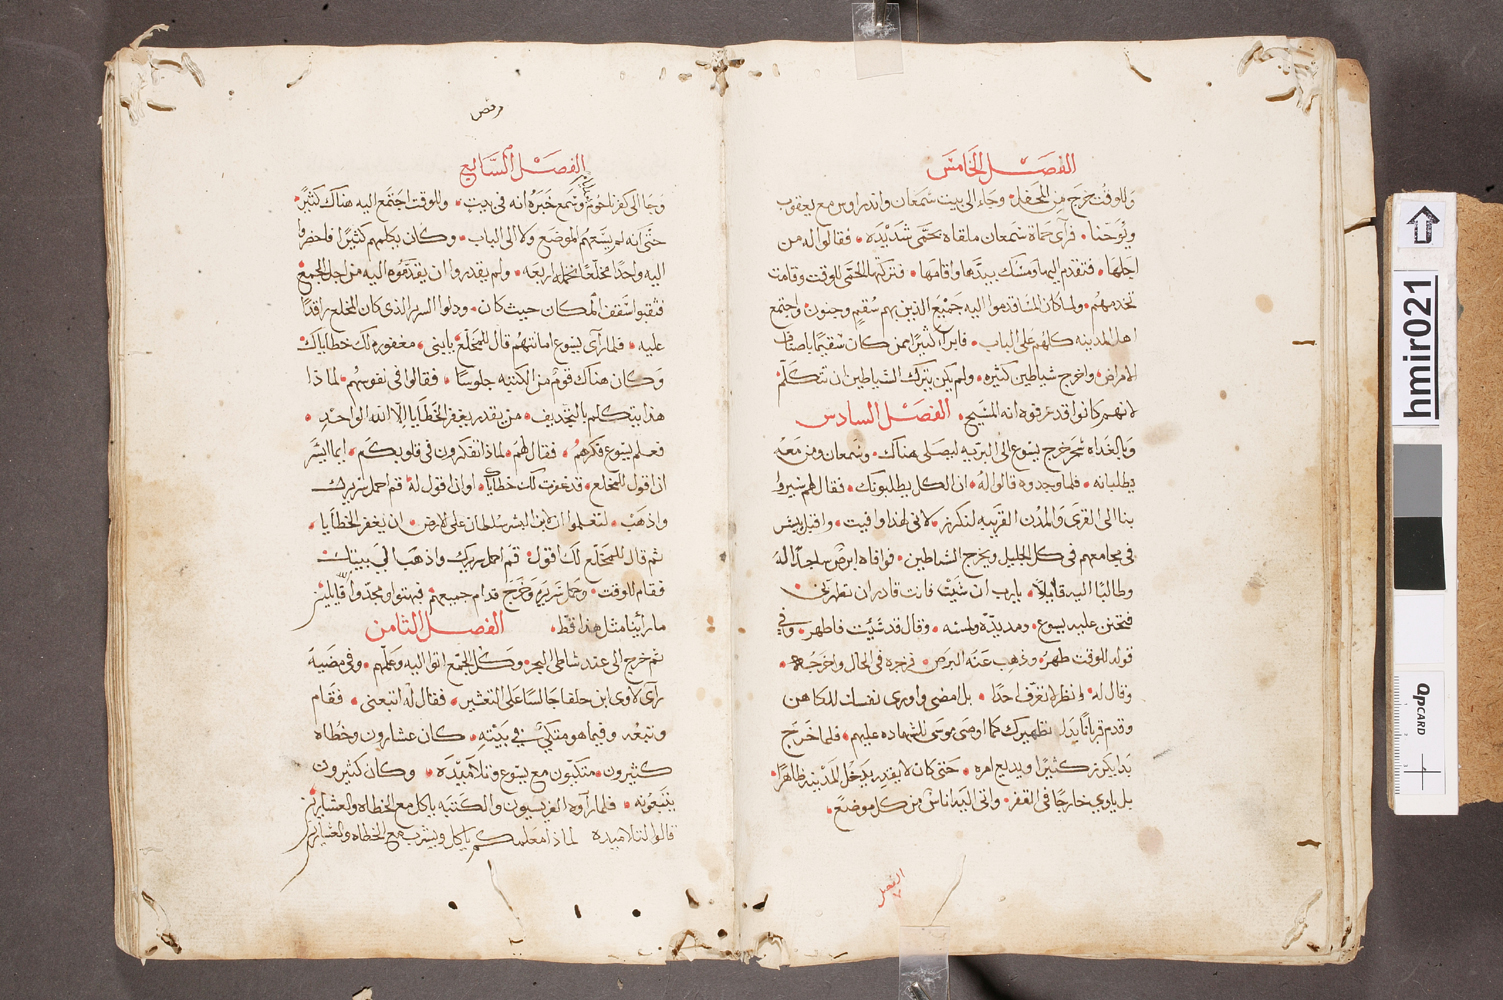 الفصل الخامس
وللوقت خرج من المحفل وجاء الى بيت شمعان واندراوس مع يعقوب
ويوحنا فرآى حماة شمعان ملقاه بحمى شديده فقالوا له من
اجلها فتقدم اليها ومسك بيدها واقامها فتركتها الحمى للوقت وقامت
تخدمهم ولما كان المسا قدموا اليه جميع الذين بهم سقم وجنون واجتمع
اهل المدينه كلهم على الباب فابرا كثيرا ممن كان سقيما باصناف
الامراض واخرج شياطين كثيره ولم يكن يترك الشياطين ان تتكلم
لانهم كانوا قد عرفوه انه المسيح الفصل السادس
وبالغداه سحر خرج يسوع الى البريه ليصلى هناك وشمعان ومن معه
يطلبانه فلما وجدوه قالوا له ان الكل يطلبونك فقال لهم سيروا
بنا الى القرى والمدن القريبه لنكرز لانى لهذا وافيت واقبل يبشر
فى مجامعهم فى كل الجليل ويخرج الشياطين فوافاه ابرص ساجدا له
وطالبا اليه قايلا يارب ان شيت فانت قادر ان تطهرنى
فتحنن عليه يسوع ومد يده ولمسه وقال قد شيت فاطهر وفي
قوله للوقت طهر وذهب عنه البرص فزجره فى الحال واخرجه
وقال له انظر لا تعرف احدا بل امضى واورى نفسك للكاهن
وقدم قربانا بدل تطهيرك كما اوصى موسى للشهاده عليهم فلما خرج
بدا يكرز كثيرا ويديع امره حتى كان لا يقدر يدخل المدينه ظاهرا
بل ياوي خارجا فى القفر واتى اليه اناس من كل موضع
الفصل
٧
مرقص
الفصل السابع
وجا الى كفرناحوم وسمع خبره انه فى بيت وللوقت اجتمع اليه هناك كثير
حتى انه لم يسعهم الموضع ولا الى الباب وكان يكلمهم كثيرا فاحضروا
اليه واحدا مخلعا تحمله اربعه ولم يقدروا ان يقدموه اليه من اجل الجمع
فنقبوا سقف المكان حيث كان ودلوا السرير الذى كان المخلع راقدا
عليه فلما رآى يسوع امانتهم قال للمخلع يا ابنى مغفوره لك خطاياك
وكان هناك قوم من الكتبه جلوسا فقالوا فى نفوسهم لماذا
هذا يتكلم بالتجديف من يقدر يغفر الخطايا الا الله الواحد
فعلم يسوع فكرهم فقال لهم لماذا تفكرون فى قلوبكم ايما ايسر
ان اقول للمخلع قد غفرت لك خطاياك او ان اقول له قم احمل سريرك
واذهب لتعلموا ان لابن البشر سلطان على الارض ان يغفر الخطايا
ثم قال للمخلع لك اقول قم احمل سريرك واذهب الى بيتك
فقام للوقت وحمل سريره وخرج قدام جميعهم فبهتوا ومجدوا الله قايلين
ما راينا مثل هذا قط الفصل الثامن
ثم خرج الى عند شاطى البحر وكل الجمع اتوا اليه وعلمهم وفى مضيه
رآى لاوى ابن حلفا جالسا على التعشير فقال له اتبعنى فقام
وتبعه وفيما هو متكئ في بيته كان عشارون وخطاه
كثيرون متكيون مع يسوع وتلاميده وكان كثيرون
يتبعونه فلما رآوه الفريسيون والكتبه ياكل مع الخطاه والعشارين
قالوا لتلاميده لماذا معلمكم ياكل ويشرب مع الخطاه والعشارين
hmir021
QP CARD